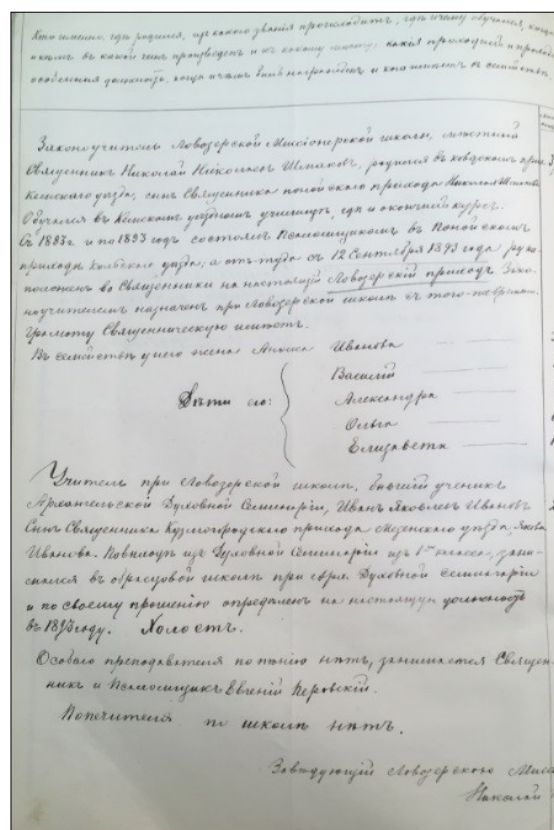 Кто именно, гдѣ родился, изъ какого званія происходитъ, гдѣ и чему обучался, когда
въ какой чинъ произведенъ и къ какому какія проходилъ и
особенныя должности, когда и чѣмъ былъ награжденъ и кто именно въ семействѣ
Законоучитель Ловозерской Миссіонерской школы, мѣстный
Священникъ Николай Николаевъ Шмаковъ, родился въ Ковдскомъ прих.
Кемскаго уѣзда, сынъ Священника понойскаго прихода Николая Шмакова
Обучался въ Кемскомъ уѣздномъ училищѣ, гдѣ и окончилъ курсъ.
Съ и по 1893 годъ состоялъ Псаломщикомъ въ Понойскомъ
приходѣ Кольскаго уѣзда; а отъ-туда съ 12 Сентября 1893 года руко-
положенъ во Священники на настоящій Ловозерскій приходъ Зако-
ноучителемъ назначенъ при Ловозерской школѣ съ того-же времени.
Грамоту Священническую имѣетъ.
Въ семействѣ у него жена Анисья Иванова
Василій
Дѣти его: Александра
Ольга
Елизавета
Учитель при Ловозерской школѣ, бывшій ученикъ
Архангельской Духовной Семинаріи, Иванъ Яковлевъ Ивановъ
Сынъ Священника прихода Мезенскаго уѣзда, Якова
Иванова. По выходѣ изъ Духовной Семинаріи изъ 1го класса, зани-
мался въ образцовой школѣ при Арх. Духовной Семинаріи
и по своему прошенію опредѣленъ на настоящую должность
въ 1893 году. Холостъ.
Особаго преподавателя по пѣнію нѣтъ, занимается Священ-
никъ и Псаломщикъ Евгеній Перовскій.
Попечителя по школѣ нѣтъ.
Завѣдующій Ловозерскою Мисс
Николай